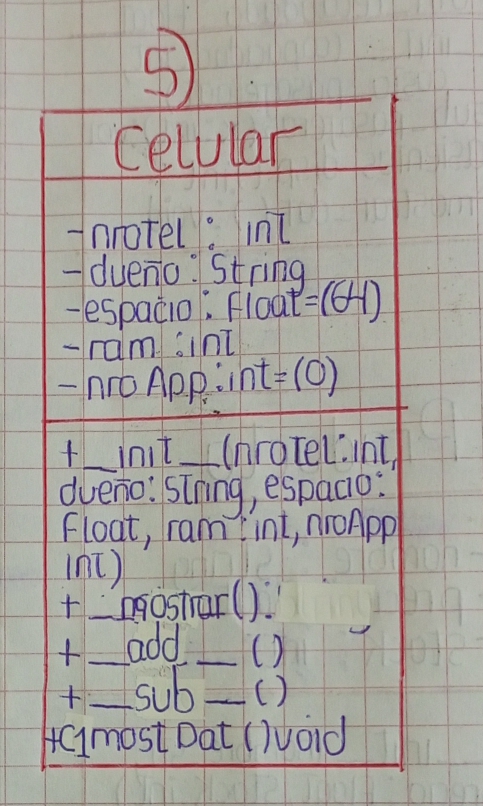 5)
Celular
-nroTel: int
-dueño: String
-espacio: Float=(64)
-ram:int
-nroApp:int=(0)
+__init__(nroTel:int,
dueño: String, espacio:
Float, ram: int, nroApp
int)
+ __mostrar():
+ __add__()
+ __sub__()
+C1mostDat()void